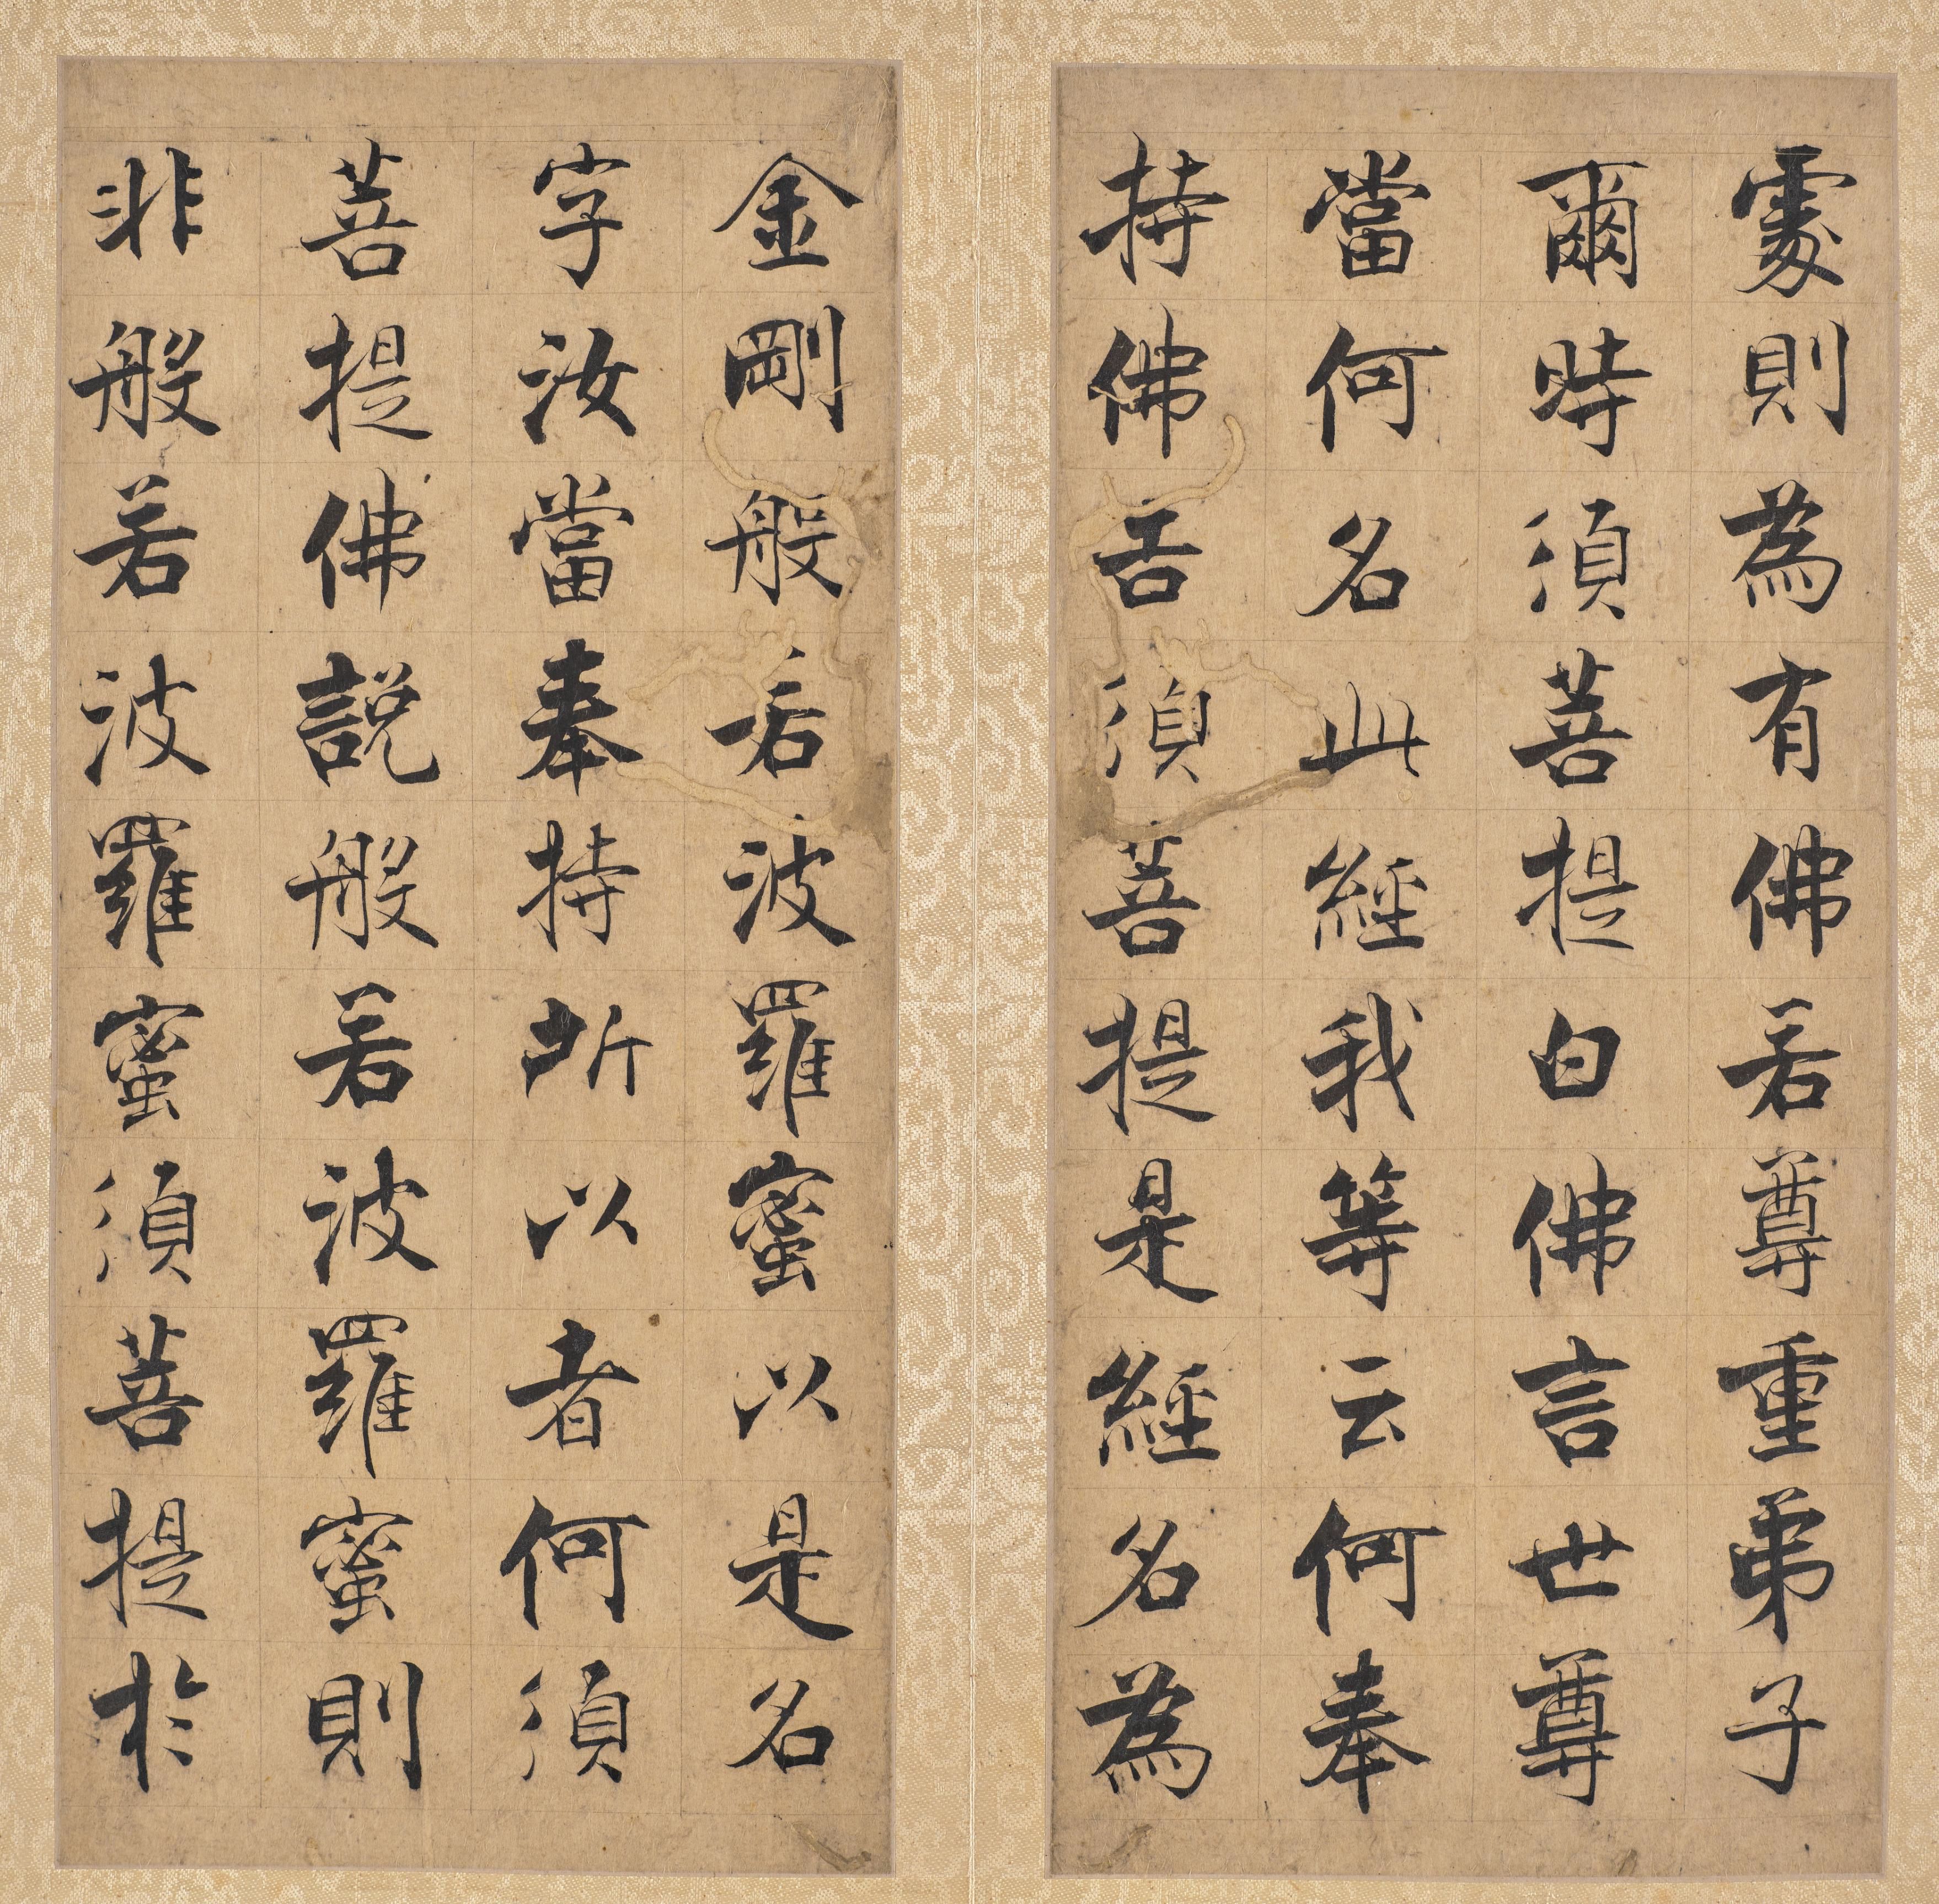 處則為有佛若尊重弟子
爾時須菩提白佛言世尊
當何名此經我等云何奉
持佛告須菩提是經名為
金剛般若波羅蜜以是名
字汝當奉持所以者何須
菩提佛說般若波羅蜜則
非般若波羅蜜須菩提於